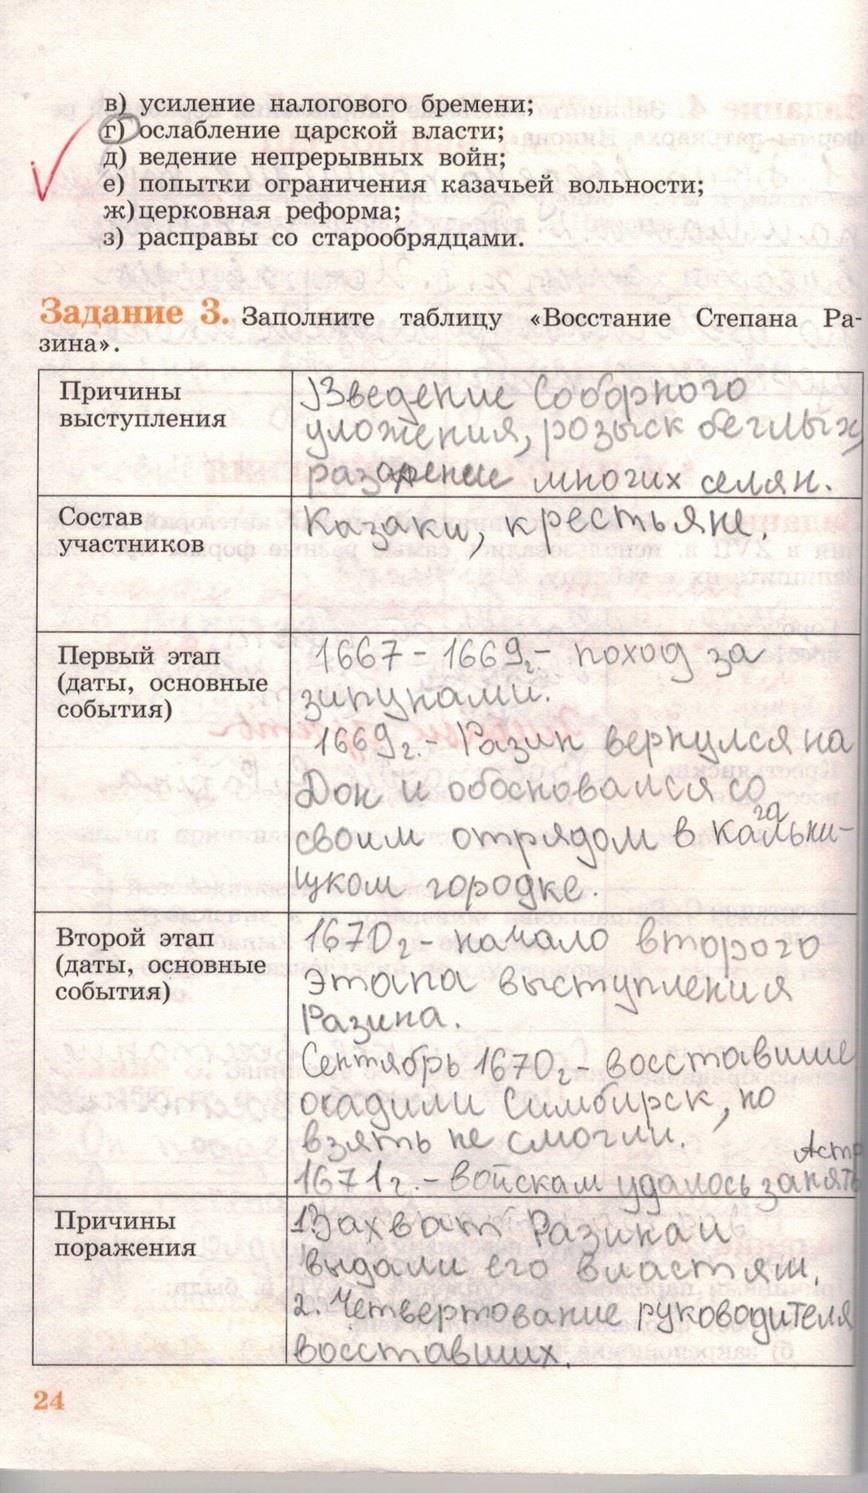 в) усиление налогового бремени;
г) ослабление царской власти;
д) ведение непрерывных войн;
е) попытки ограничения казачьей вольности;
ж) церковная реформа;
з) расправы со старообрядцами.
Задание 3. Заполните таблицу «Восстание Степана Ра-
зина».
Причины
выступления
Введение Соборного
уложения, розыск беглых,
разарение многих селян.
Состав
участников
Казаки, крестьяне.
Первый этап
(даты, основные
события)
1667 - 1669г.- поход за
зипунами.
1669г.- Разин вернулся на
Дон и обосновался со
своим отрядом в Кагальни-
цком городке.
Второй этап
(даты, основные
события)
1670г- начало второго
этапа выступления
Разина.
Сентябрь 1670г- восставшие
осадили Симбирск, но
взять не смогли.
1671г.- войскам удалось занять Астр
Причины
поражения
1 Захват Разина и
выдали его властям.
2. Четвертование руководителя
восставших.
24